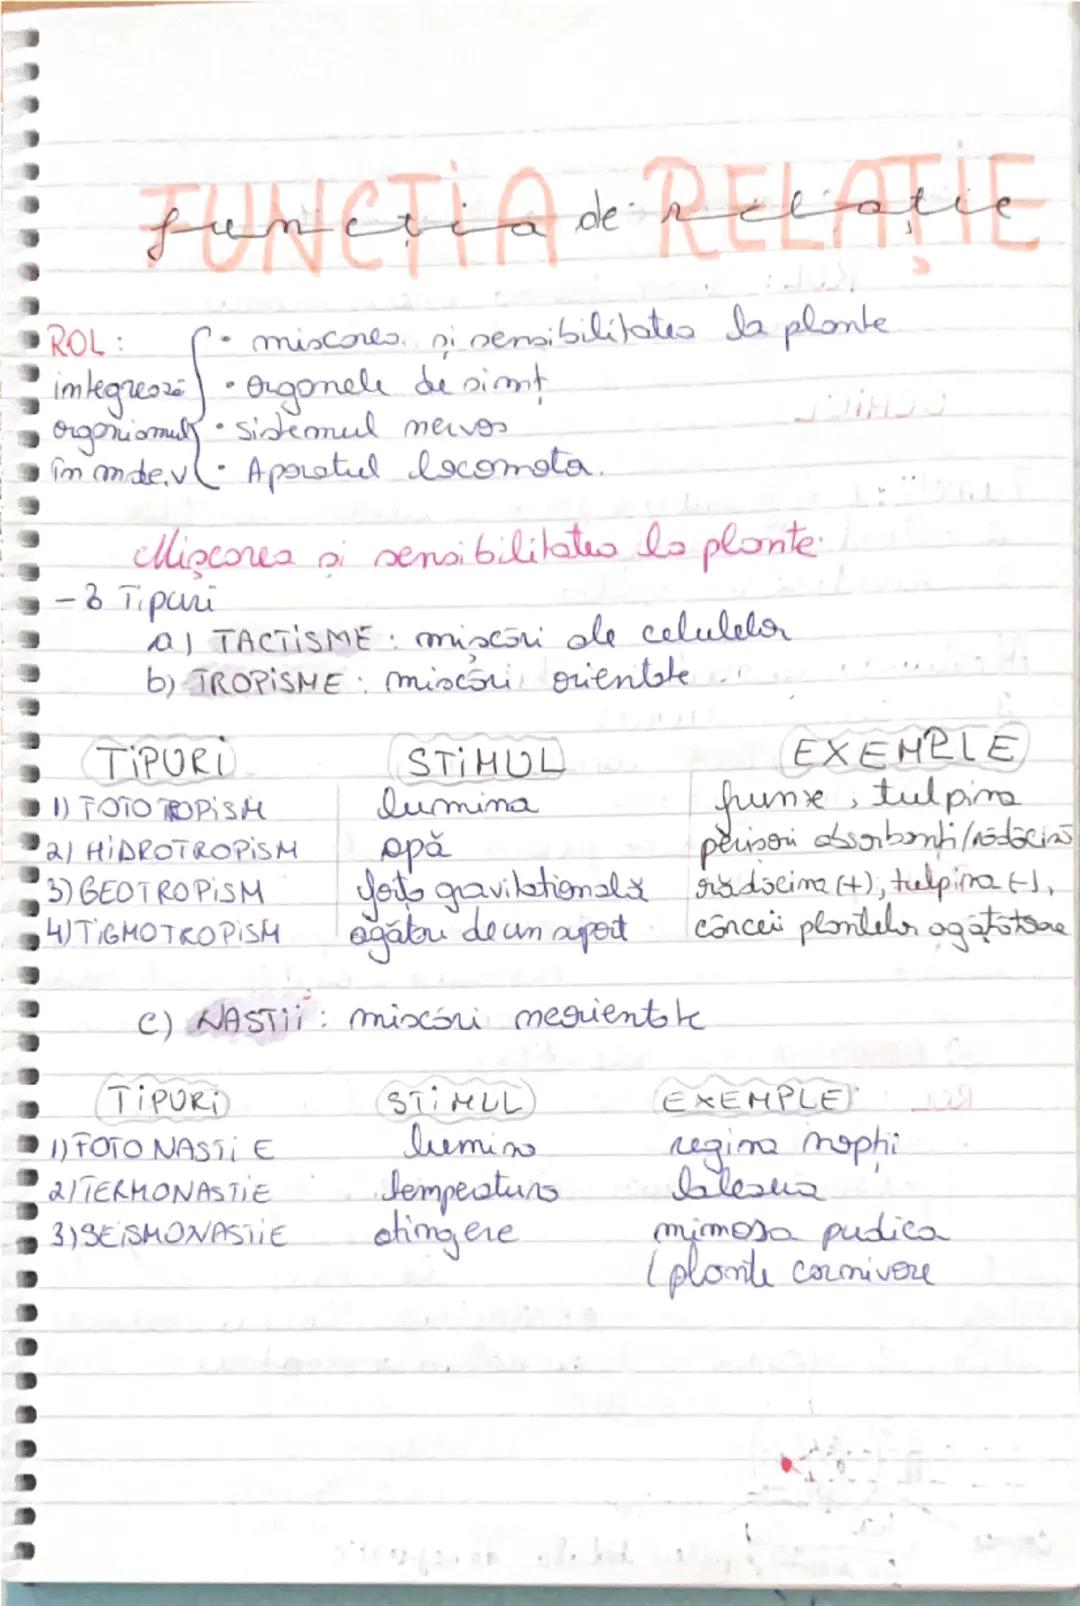 FUNCȚIA RELAȚIE
funcția de relație
ROL: • miscarea și sensibilitatea la plante
integrează • Organele de simț
organismul • Sistemul nervos
în mde.v • Aparatul locomotor.
Mișcarea și sensibilitatea la plante.
- 3 Tipuri
a) TACTISME: mișcări ale celulelor
b) TROPISME: miscări orientate
TIPURI STIMUL EXEMPLE
1) FOTOTROPISM lumina frunze, tulpina
2) HIDROTROPISM apă perisori absorbanti/rădăcină
3) GEOTROPISM forța gravitațională rădăcina (+), tulpina (-),
4) TIGMOTROPISM agătare de un suport cârceii plantelor agățătoare
c) NASTII: miscări neorientate
TIPURI STIMUL EXEMPLE
1) FOTONASTIE lumina regina nopții
2) TERMONASTIE temperatura laleaua
3) SEISMONASTIE atingere mimosa pudica
(plante carnivore